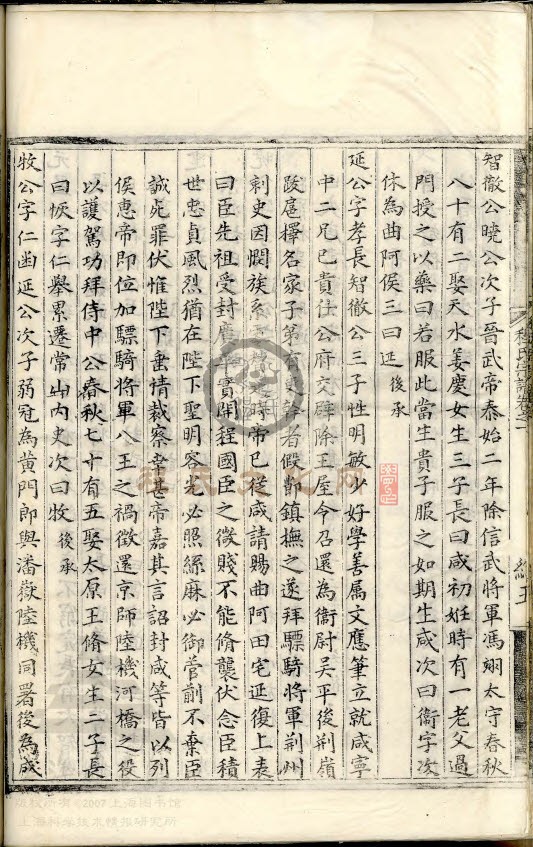 智徹公曉公次子晉武帝泰始二年除信武將軍馮翊太守春秋
八十有二娶天水姜慶女生三子長曰咸初姙時有一老父過
門授之以藥曰若服此當生貴子服之如期生咸次曰衞字次
休為曲阿侯三曰延後承
延公字孝長智徹公三子性明敏少好學善属文應筆立就咸寧
中二兄已貴仕公府交辟除王屋令召還為衞尉吳平後荆嶺
陵扈擇名家子第有幹者假節鎮撫之遂拜驃騎將軍荆州
刺史因閱族系時帝已從咸請賜曲阿田宅延復上表
曰臣先祖受封廣平實開程國臣之微賤不能脩襲伏念臣積
世忠貞風烈猶在陛下聖明容光必照絲麻必御菅蒯不棄臣
誠死罪伏惟陛下垂情裁察幸甚帝嘉其言詔封咸等皆以列
侯惠帝即位加驃騎將軍八王之禍徵還京師陸機河橋之役
以護駕功拜侍中公春秋七十有五娶太原王脩女生二子長
曰恢字仁舉累遷常山内史次曰牧後承
牧公字仁凾延公次子弱冠為黄門郎與潘嶽陸機同署後為咸
程氏宗譜卷之一
版权所有©2007上海图书馆
上海科学技术情报研究所